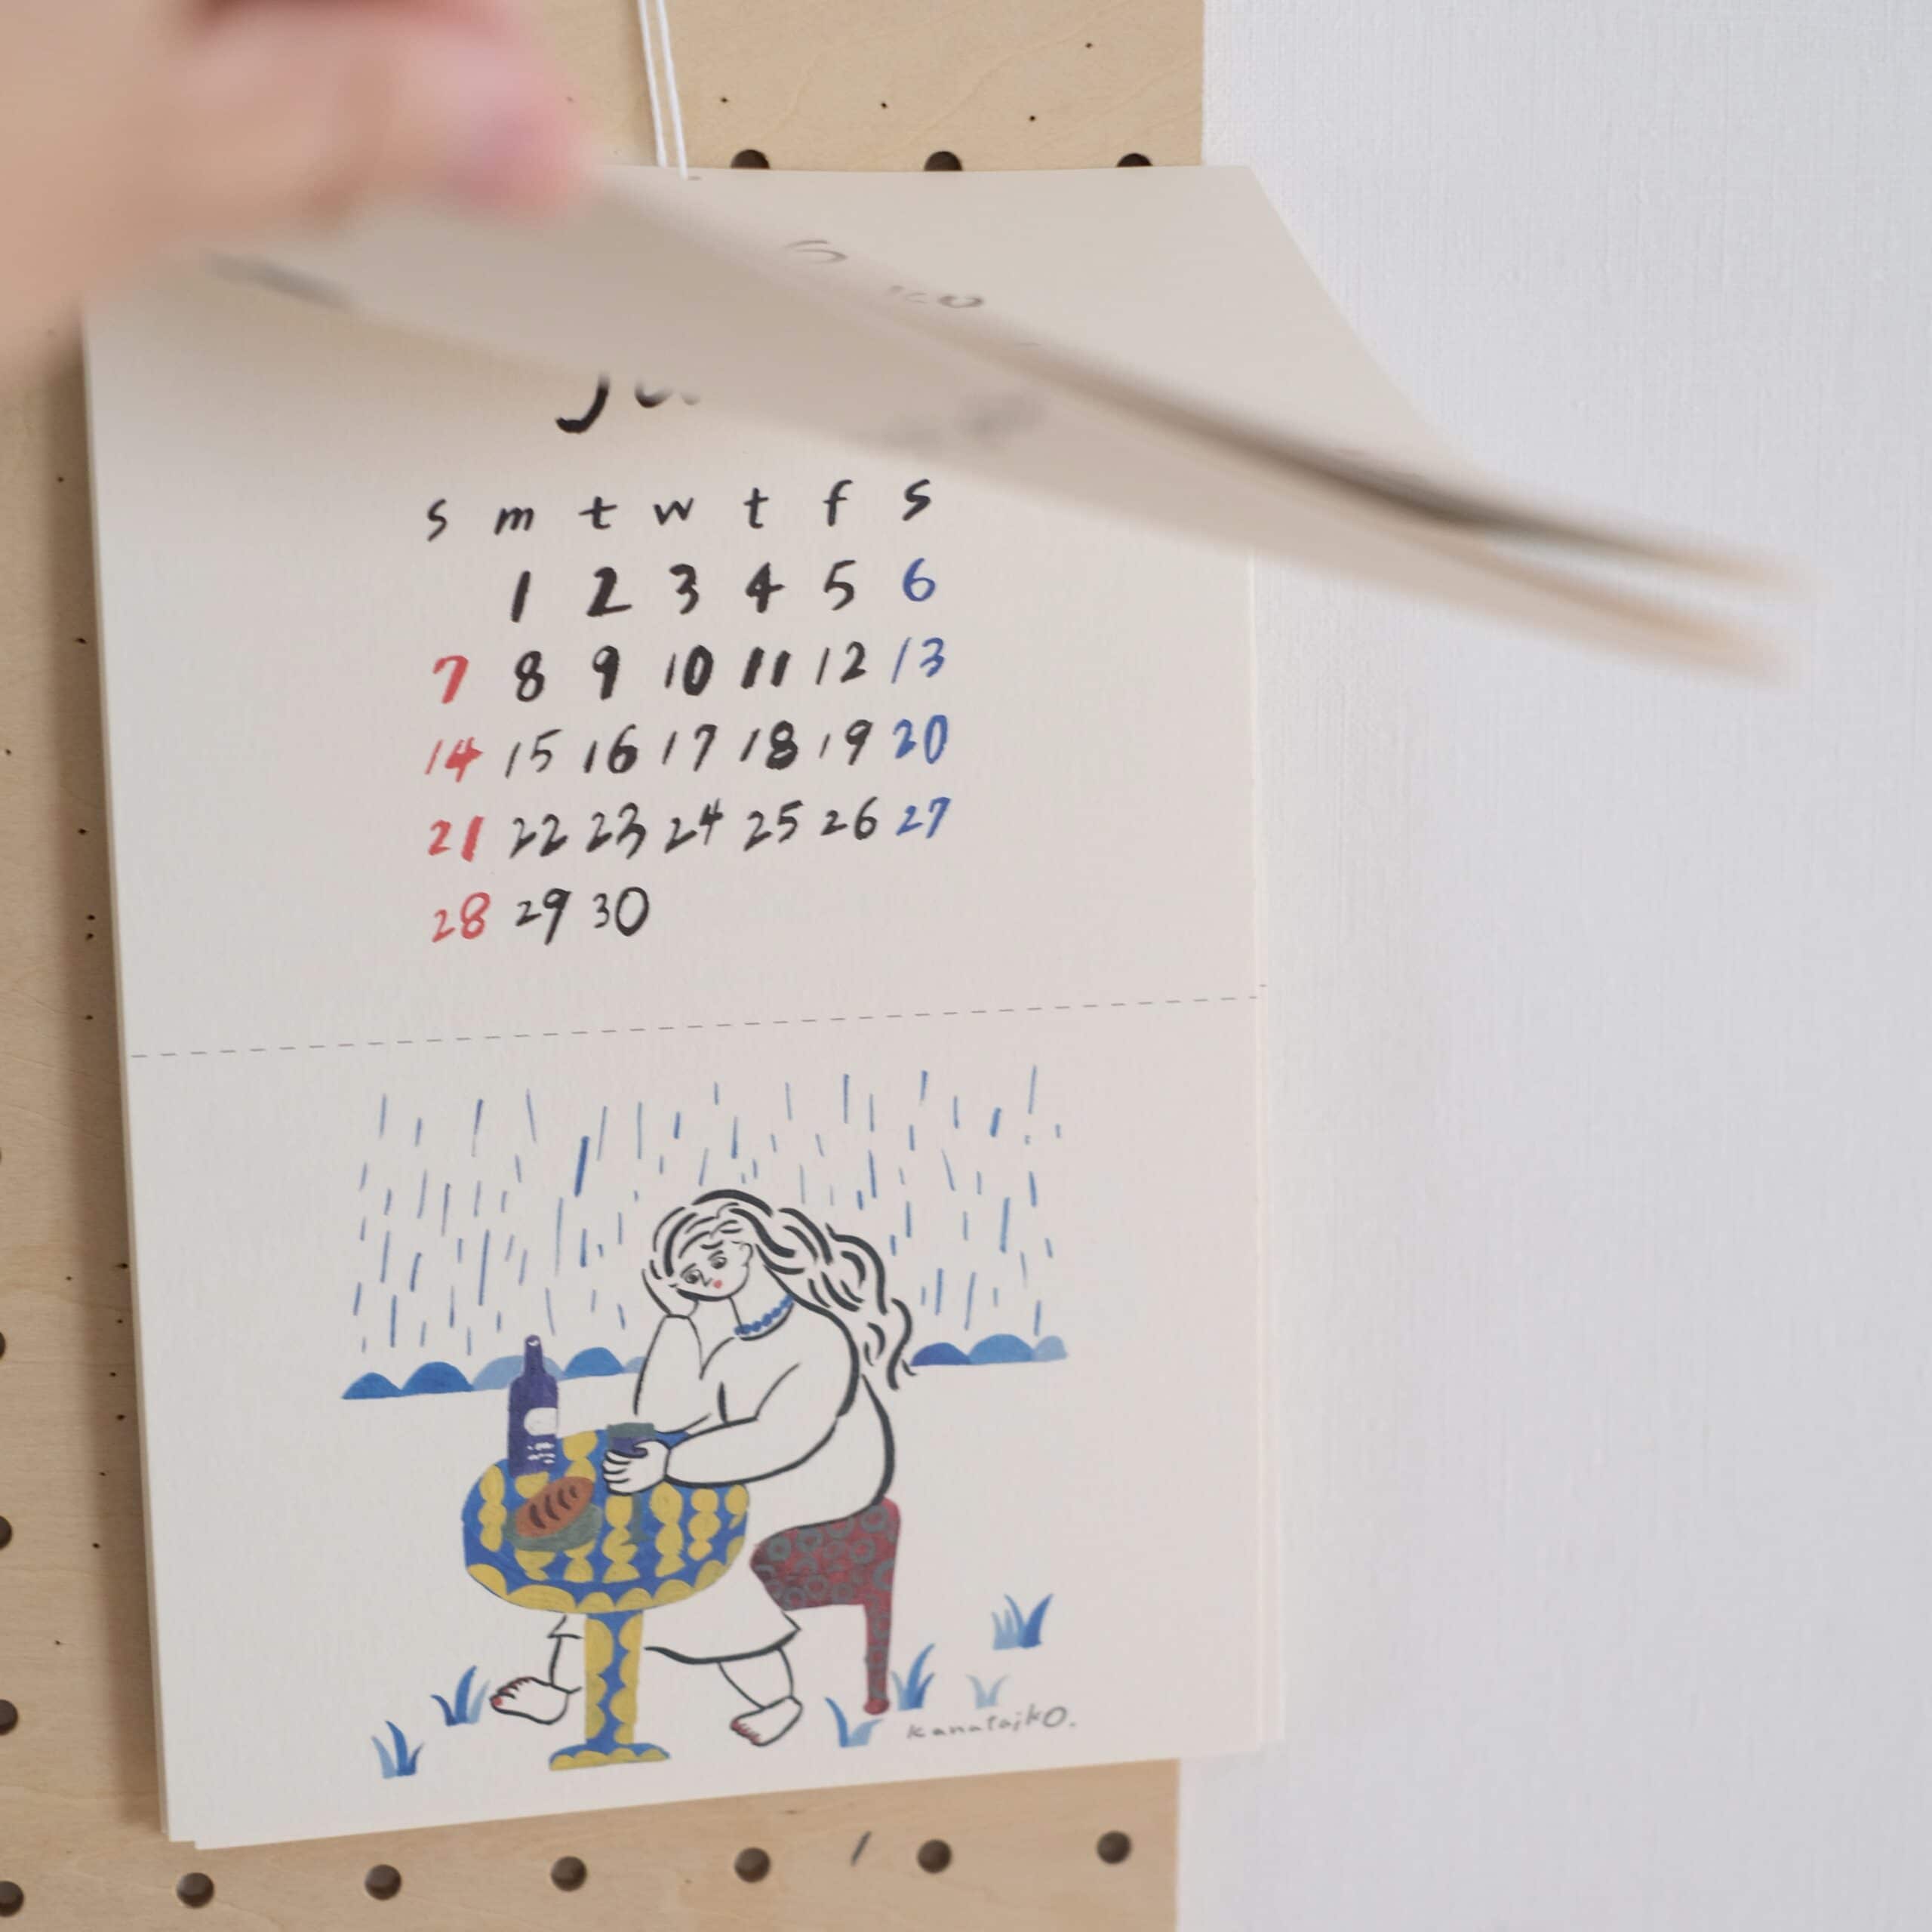 Ju
s m t w t f s
1 2 3 4 5 6
7 8 9 10 11 12 13
14 15 16 17 18 19 20
21 22 23 24 25 26 27
28 29 30
kanataiko.